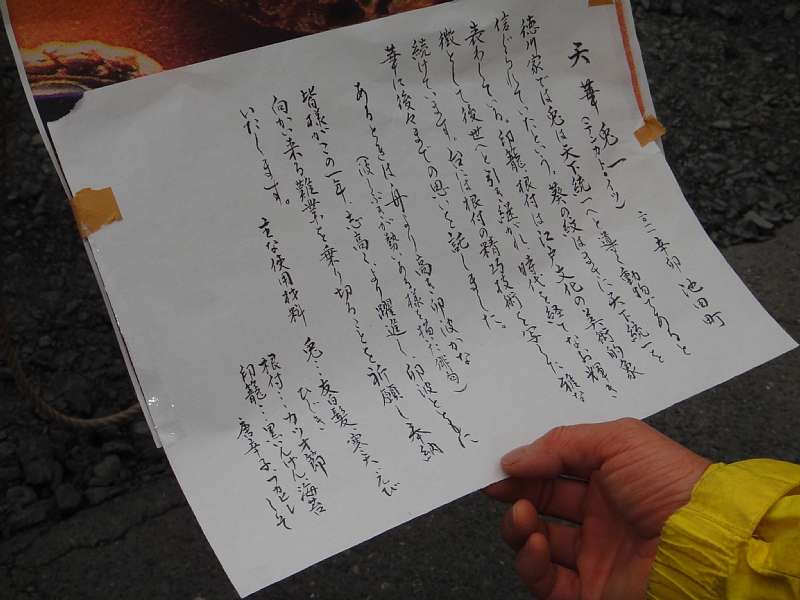 天華兎一 二三辛卯 池田町
(テンカトーイツ)
徳川家では兎は天下統一へと導く動物であると
信じられていたという。葵の紋はまさに天下統一を
表わしている。印籠・根付は江戸文化の美術的象
徴として後世へと引き継がれ、時代を経てなお輝き
続けています。台には根付の精巧技術を写した雅な
華に後々までの思いを託しました。
あるときは舟より高き卯波かな
(波しぶきが勢いある様を描いた俳句)
皆様がこの一年、志高くより躍進し、卯波とともに
向かい来る難業を乗り切ることを祈願し奉納
いたします。
主な使用材料
兎‥春雨、寒天、えび
ひじき
根付‥カツオ節
印籠‥黒いんげん、海苔
唐辛子